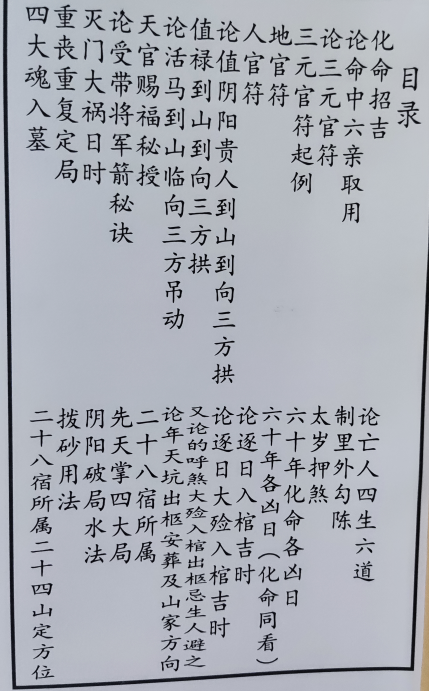 目录
化命招吉
论命中六亲取用
论三元官符
三元官符起例
地官符
人官符
论值阴阳贵人到山到向三方拱
值禄到山到向三方拱
论活马到山临向三方吊动
天官赐福秘授
论受带将军箭秘诀
灭门大祸日时
重丧重复定局
四大魂入墓
论亡人四生六道
制里外勾陈
太岁押煞
六十年化命各凶日
六十年各凶日（化命同看）
论逐日入棺吉时
论逐日大殓入棺吉时
又论的呼煞大殓入棺出柩忌生人避之
论年天坑出柩安葬及山家方向
二十八宿所属
先天掌四大局
阴阳破局水法
拨砂用法
二十八宿所属二十四山定方位